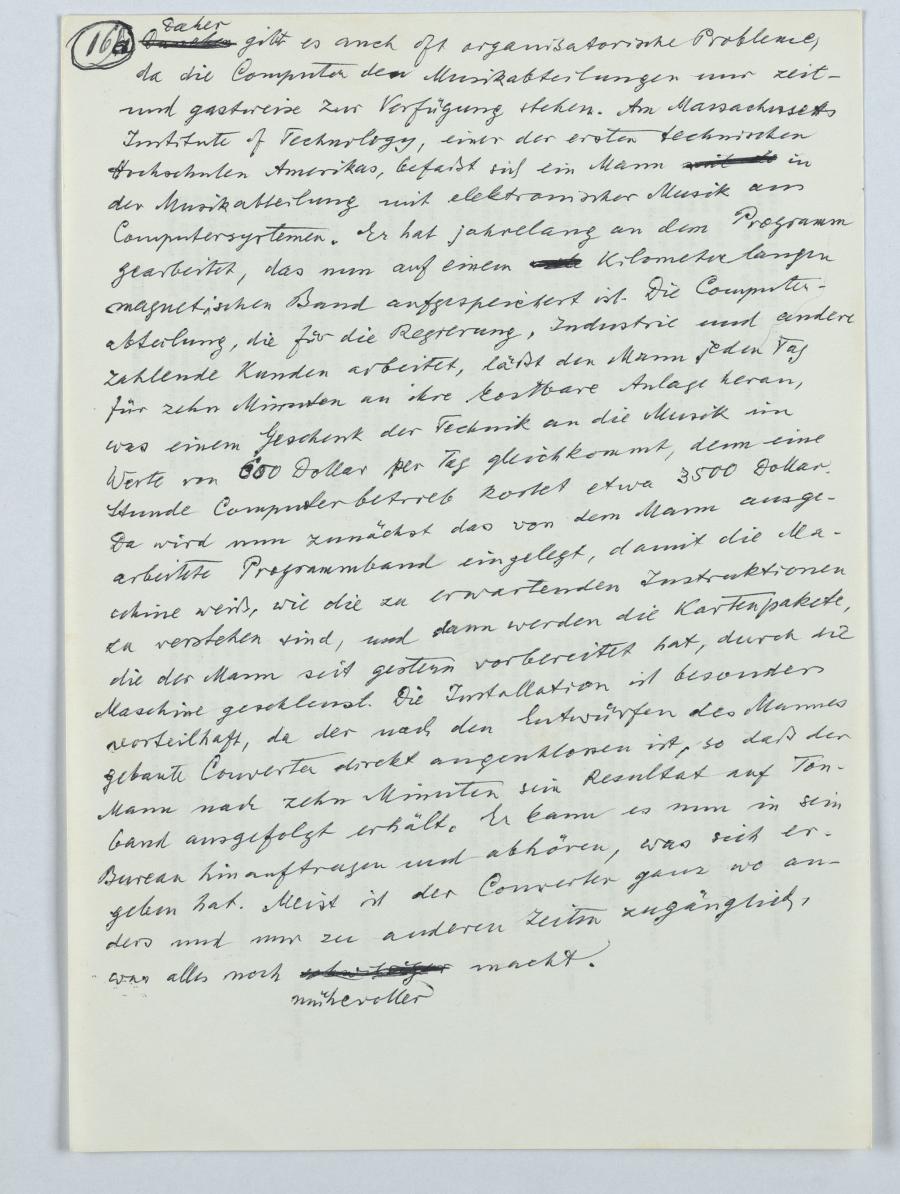 Daher
16a gibt es auch oft organisatorische Probleme,
da die Computer den Musikabteilungen nur zeit-
und gastweise zur Verfügung stehen. Am Massachussetts
Institute of Technology, einer der ersten technischen
Hochschulen Amerikas, befaßt sich ein Mann in
der Musikabteilung mit elektronischer Musik aus
Computersystemen. Er hat jahrelang an dem Programm
gearbeitet, das nun auf einem Kilometer langen
magnetischen Band aufgespeichert ist. Die Computer-
abteilung, die für die Regierung, Industrie und andere
zahlende Kunden arbeitet, läßt den Mann jeden Tag
für zehn Minuten an ihre kostbare Anlage heran,
was einem Geschenk der Technik an die Musik im
Werte von 600 Dollar per Tag gleichkommt, denn eine
Stunde Computerbetrieb kostet etwa 3500 Dollar.
Da wird nun zunächst das von dem Mann ausge-
arbeitete Programmband eingelegt, damit die Ma-
schine weiß, wie die zu erwartenden Instruktionen
zu verstehen sind, und dann werden die Kartenpakete,
die der Mann seit gestern vorbereitet hat, durch die
Maschine geschleust. Die Installation ist besonders
vorteilhaft, da der nach den Entwürfen des Mannes
gebaute Converter direkt angeschlossen ist, so daß der
Mann nach zehn Minuten sein Resultat auf Ton-
band ausgefolgt erhält. Er kann es nun in sein
Bureau hinauftragen und abhören, was sich er-
geben hat. Meist ist der Converter ganz wo an-
ders und nur zu anderen Zeiten zugänglich,
was alles noch macht.
mühevoller